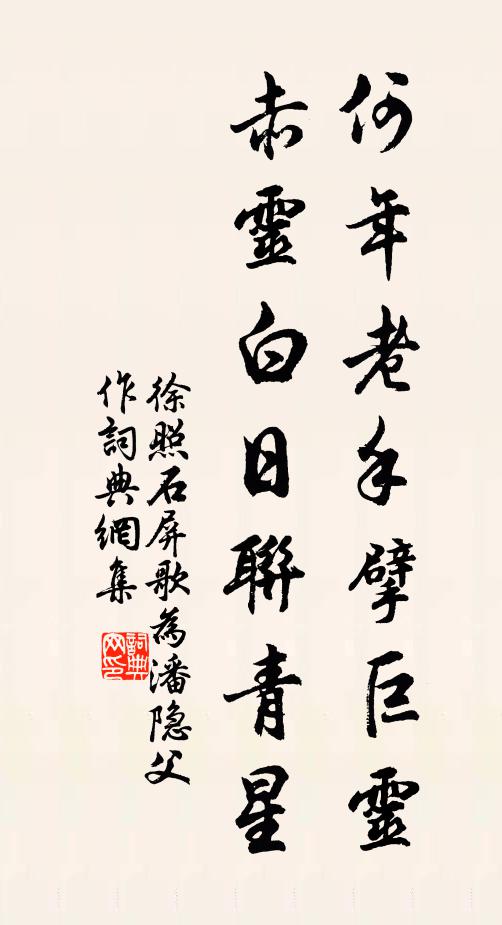 何年老手擘巨靈
赤靈白日聯青星
徐照石屏歌為潘隐父
作詞典網集
詞典網印